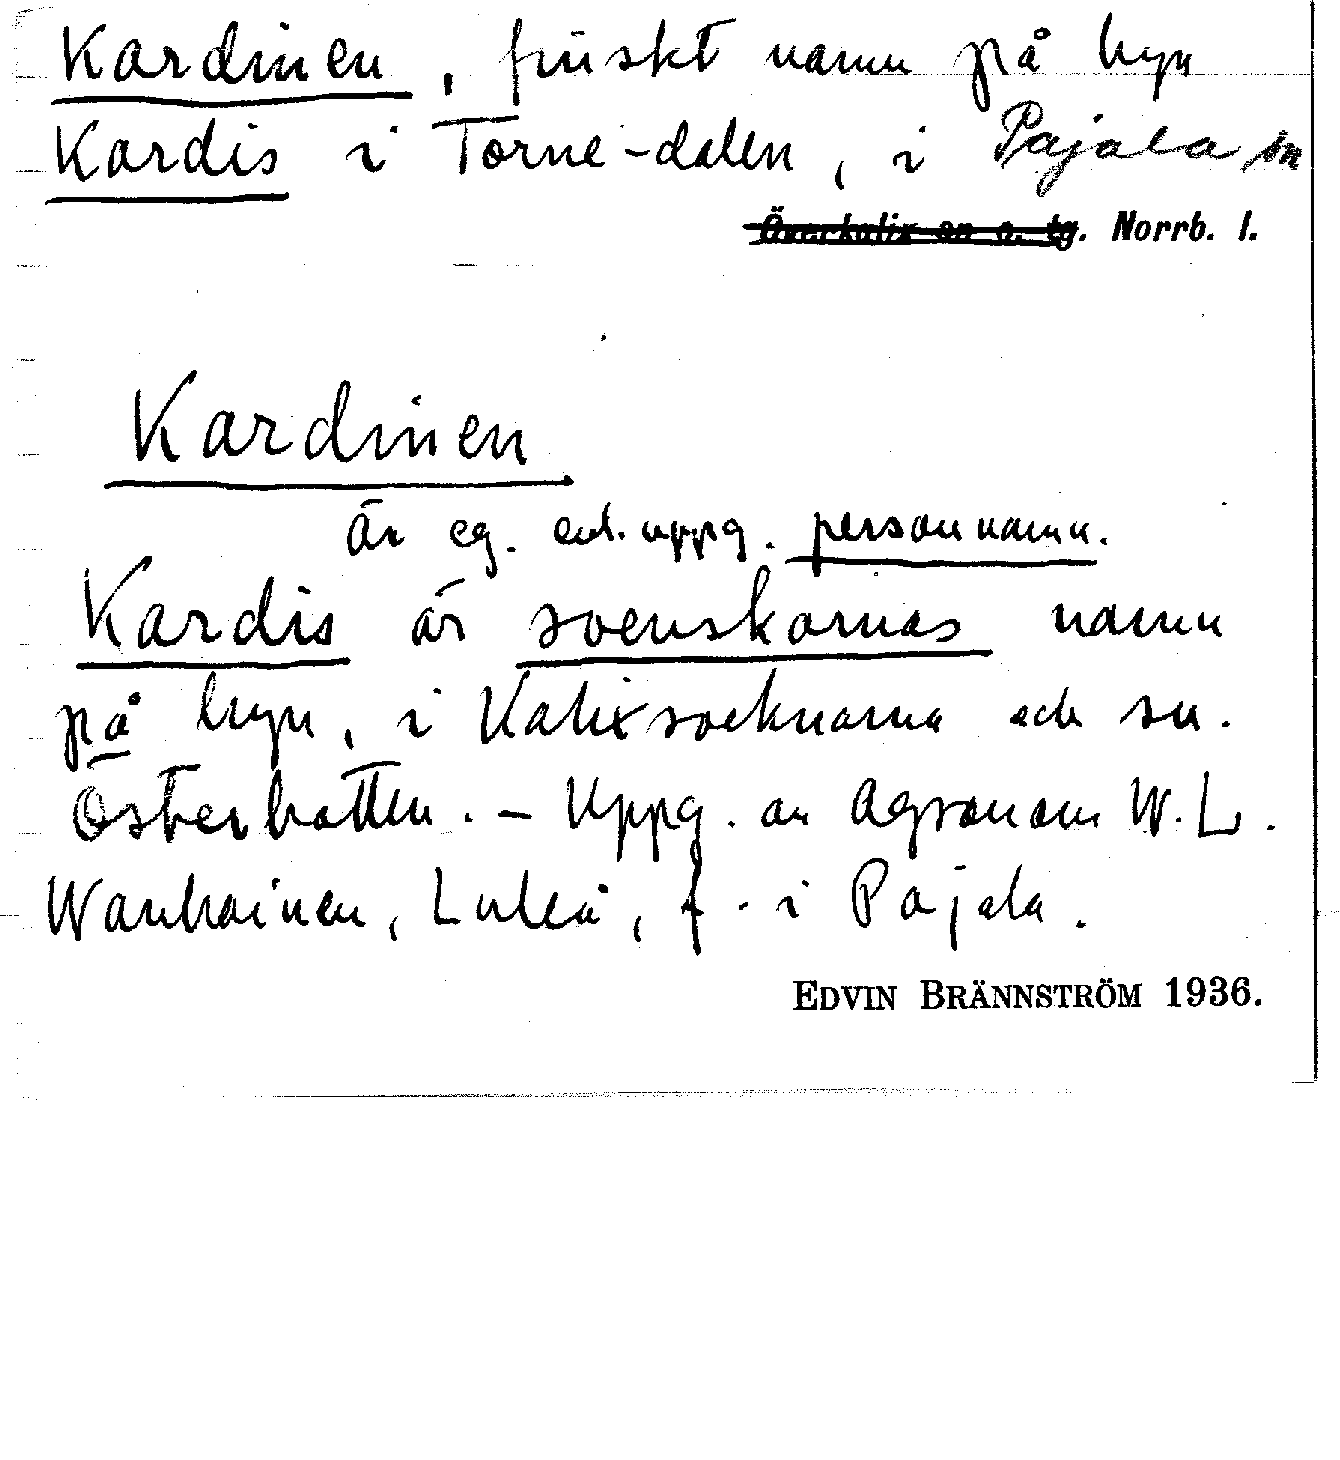 Kardinen, finskt namn på byn
Kardis i Torne-dalen, i Pajala sn
Överkalix sn o. tg. Norrb. l.
Kardinen
är eg. enl. uppg. personnamn.
Kardis är svenskarnas namn
på byn, i Kalixsocknarna och sv.
Österbotten. – Uppg. av Agronom W. L.
Wanhainen, Luleå, f. i Pajala.
EDVIN BRÄNNSTRÖM 1936.